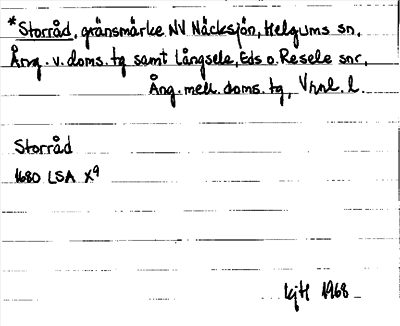 *Storråd, gränsmärke NV Näcksjön, Helgums sn,
Ång. v. doms. tg samt Långsele, Eds o. Resele snr,
Ång. mell. doms. tg, Vrnl. l.
Storråd
1680 LSA X9
kjH 1968